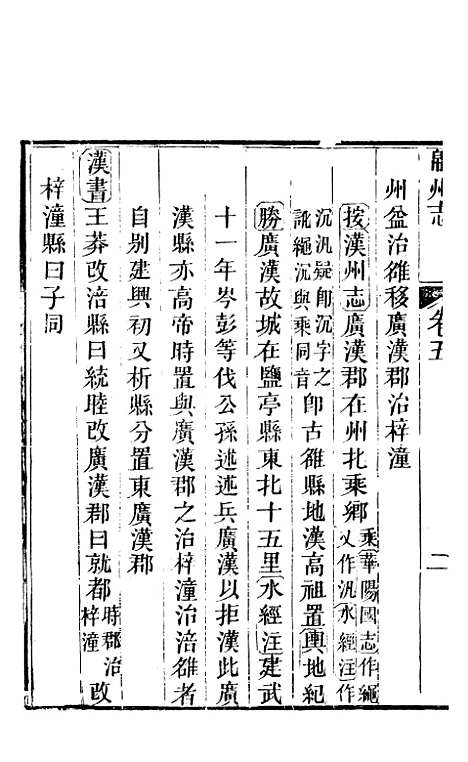 州志
卷五
二
州益治雒移廣漢郡治梓潼
按漢州志廣漢郡在州北乘鄉乘華陽國志作繩又作汎水經注作
沉汎疑卽沉字之訛繩沉與乘同音卽古雒縣地漢高祖置輿地紀
勝廣漢故城在鹽亭縣東北十五里水經注建武
十一年岑彭等伐公孫述述兵廣漢以拒漢此廣
漢縣亦高帝時置與廣漢郡之治梓潼治涪雒者
自别建興初又析縣分置東廣漢郡
漢書王莽改涪縣曰統睦改廣漢郡曰就都時郡治梓潼改
梓潼縣曰子同